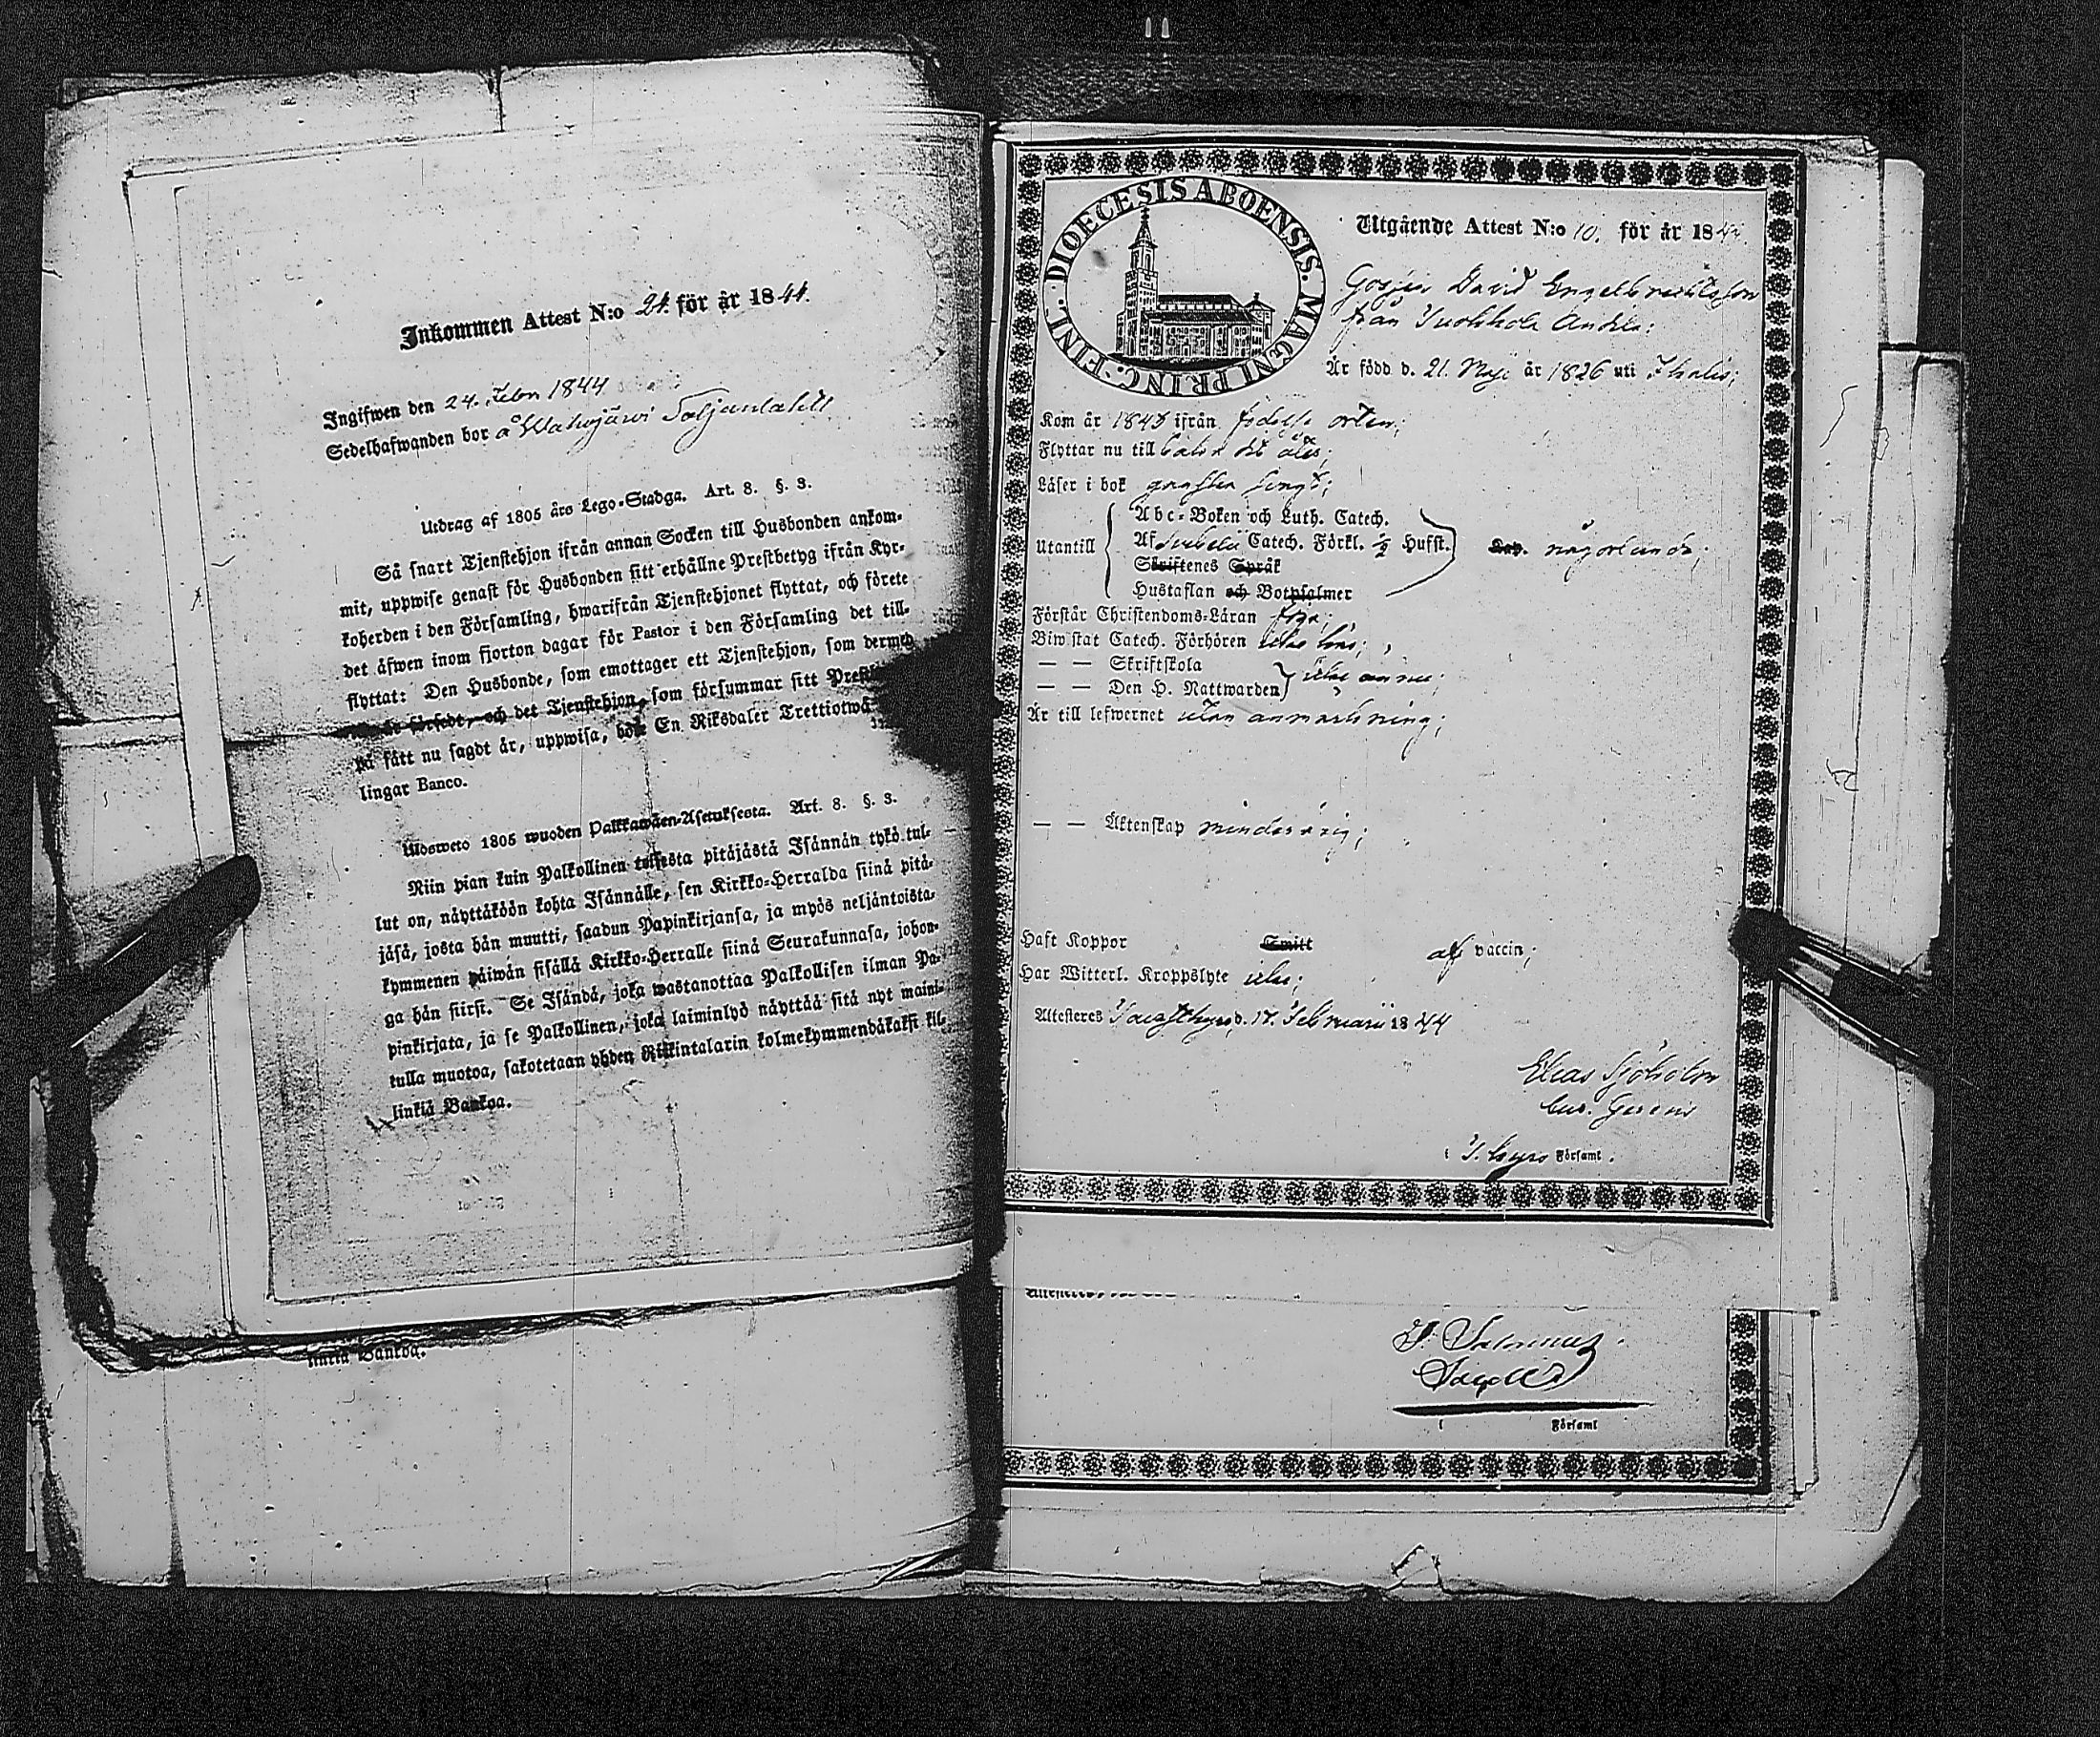 Inkommen Attest N:o 24. för år 1844.
Ingifwen den 24. Febr 1844
Sedelhafwanden bor å Wahojärwi Toljanlahti
Utdrag af 1805 års Lego-Stadga. Art. 8. §. 3.
Så snart Tjenstehjon ifrån annan Socken till Husbonden ankom-
mit, uppwise genast för Husbonden sitt erhållne Prestbetyg ifrån Kyr-
koherden i den Församling, hwarifrån Tjenstehjonet flyttat, och förete
det äfwen inom fjorton dagar för Pastor i den Församling det till-
flyttat: Den Husbonde, som emottager ett Tjenstehjon, som dermed
försedt, och det Tjenstehjon, som försummar sitt
på sätt nu sagdt är, uppwisa, böte En Riksdaler Trettiotwå
lingar Banco.
Ulosweto 1805 wuoden Palkkawäen-Asetuksesta. Art. 8. §. 3.
Niin pian kuin Palkollinen toisesta pitäjästä Isännän tykö tul-
lut on, näyttäköön kohta Isännälle, sen Kirkko-Herralda siinä pitä-
jäsä, josta hän muutti, saadun Papinkirjansa, ja myös neljäntoista-
kymmenen päiwän sisällä Kirkko-Herralle siinä Seurakunnasa, johon-
ga hän siirst. Se Isändä, joka wastanottaa Palkollisen ilman Pa-
pinkirjata, ja se Palkollinen, joka laiminlyö näyttää sitä nyt maini-
tulla muotoa, sakotetaan yhden Riikintalarin kolmekymmendäkaksi kil-
linkiä Bankoa.
linkiä Bankoa.
DIOECESIS ABOENSIS. MAGNI PRINC. FINL.
Utgående Attest N:o 10. för år 1844
Gossen David Engelbrechtsson
från
Är född d. 21. Maji år 1826 uti Ikalis;
Kom år 1843 ifrån födelse orten;
Flyttar nu till
Läser i bok
Utantill
Abc-Boken och Luth. Catech.
Af Svebelii Catech. Förkl. ½ Hufst.
någorlunda;
Skriftenes Språk
Hustaflan och Botpsalmer
Förstår Christendoms-Läran
Biwistat Catech. Förhören
— — Skriftskola
— — Den H. Nattwarden
icke ännu;
Är till lefwernet utan anmärkning;
— — Äktenskap minderårig;
Haft Koppor Smitt af vaccin;
Har Witterl. Kroppslyte icke;
Attesteres Tavastkyro d. 17. Februarii 1844
Elias Sjöholm
i T. kyro Församl.
i Församl